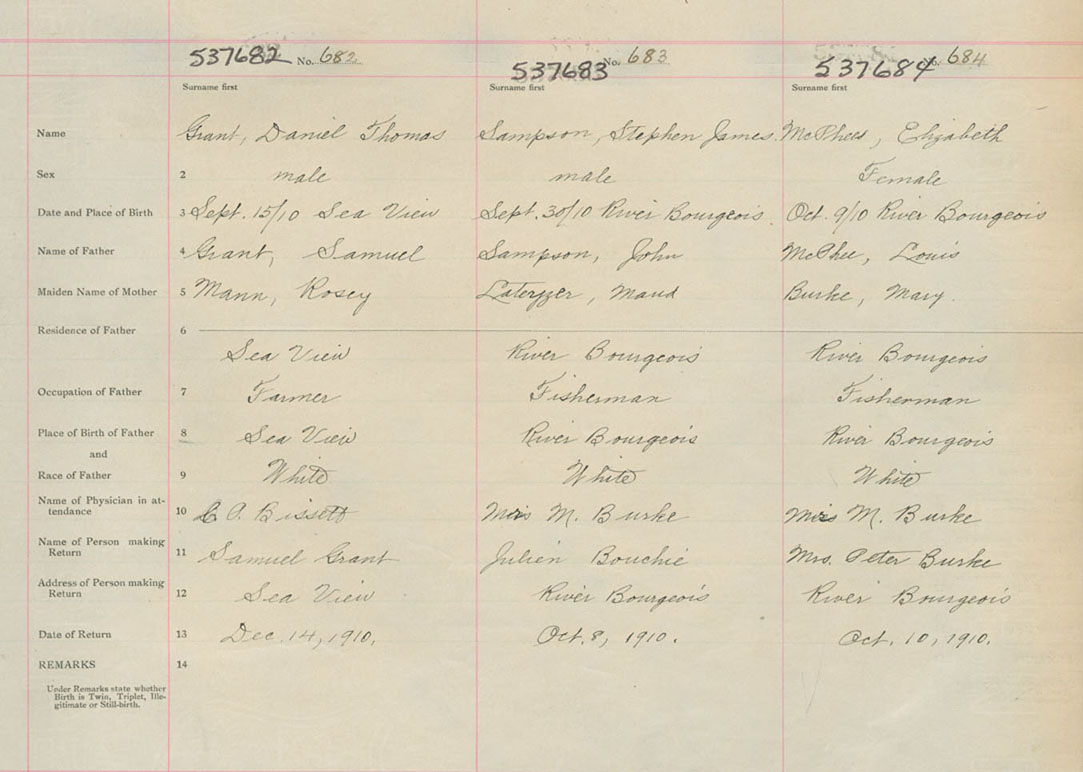 537682 No. 682 537683 No. 683 537684 No. 684
Surname first Surname first Surname first
Name Grant, Daniel Thomas Sampson, Stephen James. McPhee, Elizabeth
Sex 2 male male Female
Date and Place of Birth 3 Sept. 15/10 Sea View Sept. 30/10 River Bourgeois. Oct. 9/10 River Bourgeois
Name of Father 4 Grant, Samuel Sampson, John McPhee, Louis
Maiden Name of Mother 5 Mann, Rosey Maud Burke, Mary.
Residence of Father 6
Sea View River Bourgeois River Bourgeois
Occupation of Father 7 Farmer Fisherman Fisherman
Place of Birth of Father 8 Sea View River Bourgeois River Bourgeois
and
Race of Father 9 White White White
Name of Physician in at-
tendance 10 Bissett M. Burke M. Burke
Name of Person making
Return 11 Samuel Grant Julien Bouchie Mrs. Peter Burke
Address of Person making
Return 12 Sea View River Bourgeois River Bourgeois
Date of Return 13 Dec. 14, 1910. Oct. 8, 1910. Oct. 10, 1910.
REMARKS 14
Under Remarks state whether
Birth is Twin, Triplet, Ille-
gitimate or Still-birth.